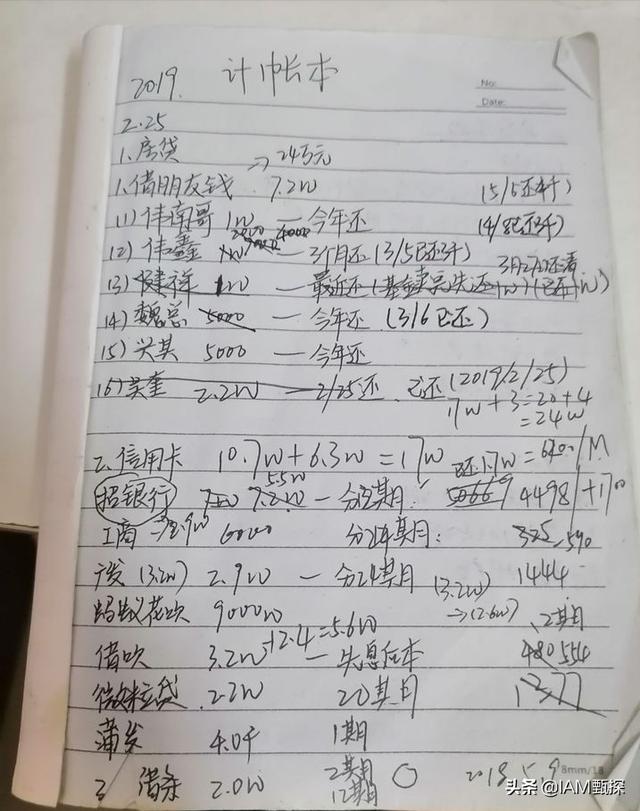 2019. 计帐本
No:
Date:
2.25
1.房贷
→24万元
1.借朋友钱 7.2W (5/5还4千)
11)伟南哥 1W — 今年还 (4/8已还3千)
12)伟鑫 1W 4000 — 3个月还(3/5已还3千)
13) 健祥 1W — 最近还
14)魏总 5000 — 今年还 (3/6已还)
15)兴其 5000 — 今年还
16)吴奎 2.2W — 2/25还 已还(2019/2/25)
17W+3=20+4
=24W
2.信用卡 10.7W+6.3W=17W 已还1.7W=6200/M
5.5W
招银行 7.2W — 分 期: 4498 +1700
工商→2.9W 6000 分24期月: 325 590
广发(3.2W) 2.9W — 分24期月 (3.2W) 1444
→(2.6W)
蚂蚁花呗 9000W 12期
借呗 3.2W+2.4=5.6W — 先息后本 480 554
微粒贷 2.2W 20期月 1377
蒲发 4.0千 1期
2.借条 2.0W 2期
12期
2018 5.9
8mm/18
头条 @IAM甄探